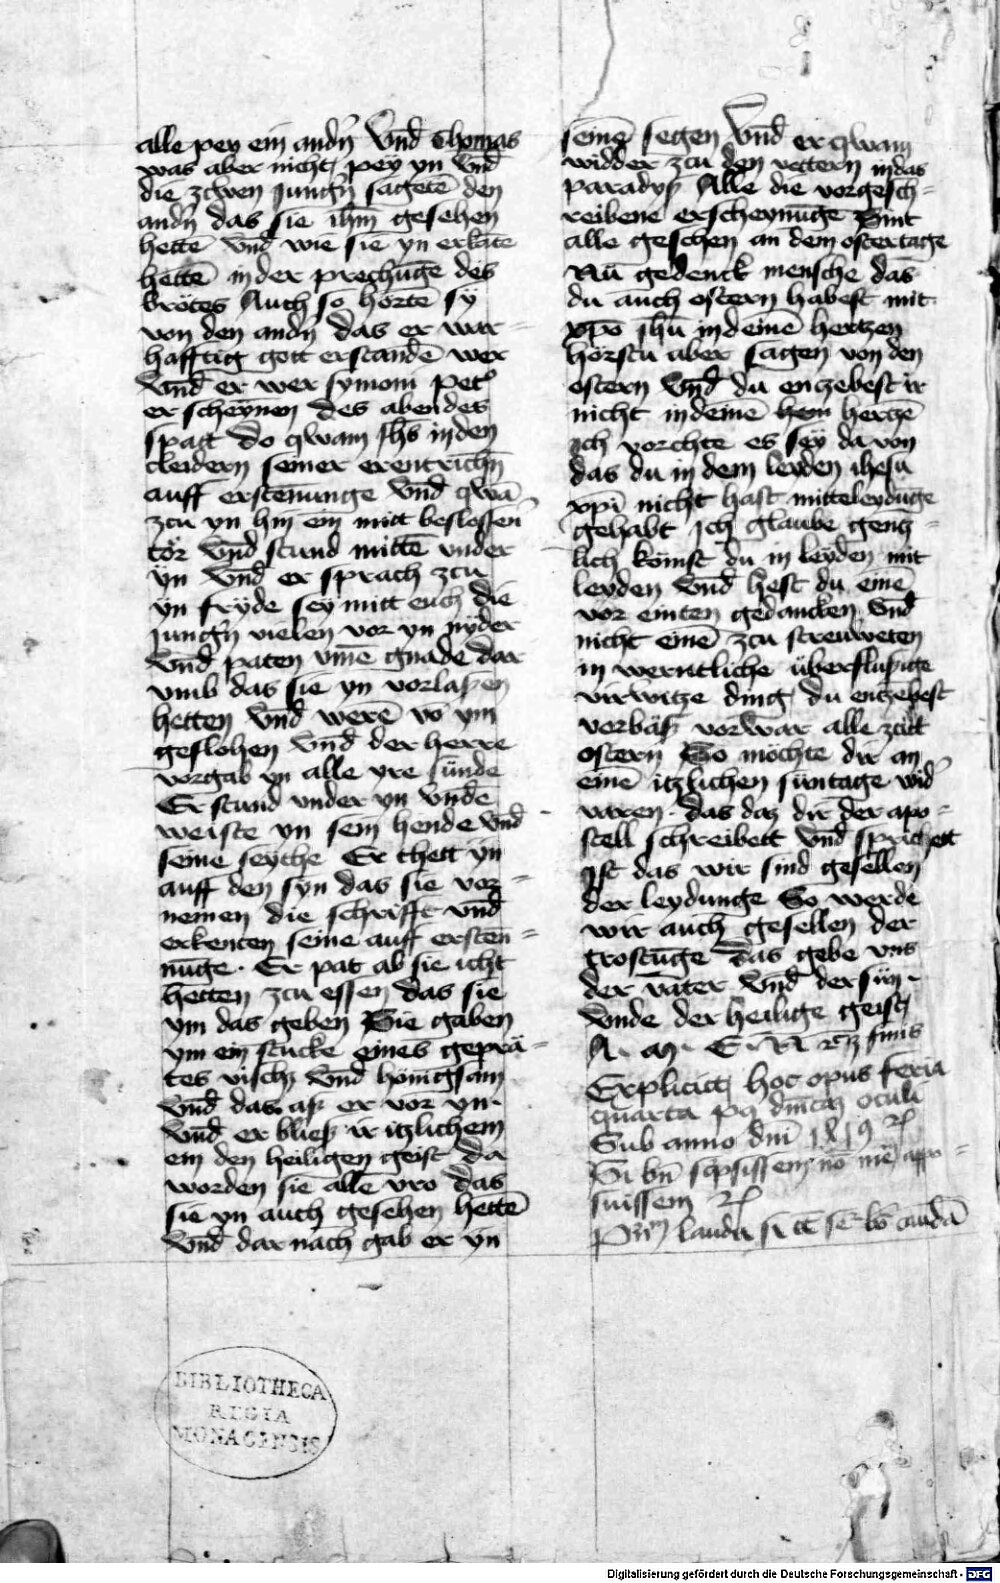 alle pey ein andn̄ Vnd Thomas
was aber nicht pey yn Vnd
die zcwen Jungn̄ sagetē den
andn̄ das sie ihm gesehen
hettē Vnd wie sie yn erkātē
hettē in der prechūge des
brötes Auch so hortē sy
von den andn̄ das er war=
hafftig gott erstandē wer
Vnd er wer symoni pet⁹
erscheynen des abendes
spatt Do qwam Jhs in den
cleidern seiner erentrichn̄
auff erstēnunge Vnd qwā
zcu yn hin ein mitt beslossen
tör Vnd stund mittē vnder
yn Vnd er sprach zcu
yn fryde sey mitt euch die
Jungn̄ vielen vor yn nyder
Vnd paten vmē gnade Dar
vmb das sie yn vorlaßen
hetten Vnd werē vō ym
geflohen Vnd der herre
vorgab yn alle yre sünde
Er stund vnder yn Vndē
weiste yn sein hende Vnd
seine seythe Er thett yn
auff den syn das sie vor=
nemen die schrifft vnd
erkenten seine auff erstēn=
nūge. Er pat ab sie icht
hetten zcu essen das sie
ym das geben Sie gaben
ym ein stucke eines geprä=
tes visch Vnd hönigsam
Vnd das aß er vor yn.
Vnd er bließ ir itzlichem
ein den heiligen geist da
worden sie alle vro das
sie yn auch gesehen hettē
Vnd dar nach gab er yn
seinē segen Vnd er qwam
widder zcu den vettern in das
paradyß Alle die vorgesch=
reibene erscheynūge Sint
alle geschen an dem ostertage
Nū gedenck mensche das
du auch ostern habest mit
xp̄o Jhū in deinē hertzen
hörstu aber sagen von den
ostern Vnd du entzebest ir
nicht in deinē hertzē
ich vorchte es sey da von
das du in dem leyden ihesu
xp̄i nicht hast mitteleydūge
gehabt Ich glaube gentz=
lich kömst du in leyden mit
leyden Vnd hest du einē
vor einten gedancken Vnd
nicht einē zcu streuweten
in werntliche überflußige
virwitze ding du entzebest
vorbaß vorwar alle zcitt
ostern So möchte dir an
einē itzlichen süntage wid̄
varen. das daz dir der apo=
stell schreibett Vnd sprichett
ist das wir sind gesellen
der leydunge So werdē
wir auch gesellen der
trostūge Das gebe vns
der vater Vnd der sün.
Vnde der heilige geist
A. M. E. N. finis
Explicit hoc opus feria
quarta pq̄ dn̄icā oculi
Sub anno dn̄i
Si bn̄ scpsissem nō mē appo=
suissem
laudā si bō caudā
BIBLIOTHECA
REGIA
MONACENSIS
Digitalisierung gefördert durch die Deutsche Forschungsgemeinschaft - DFG